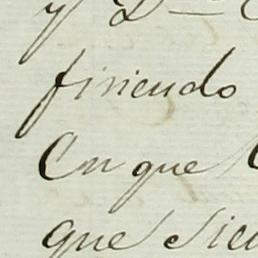 y D
firiendo
En que
que sie